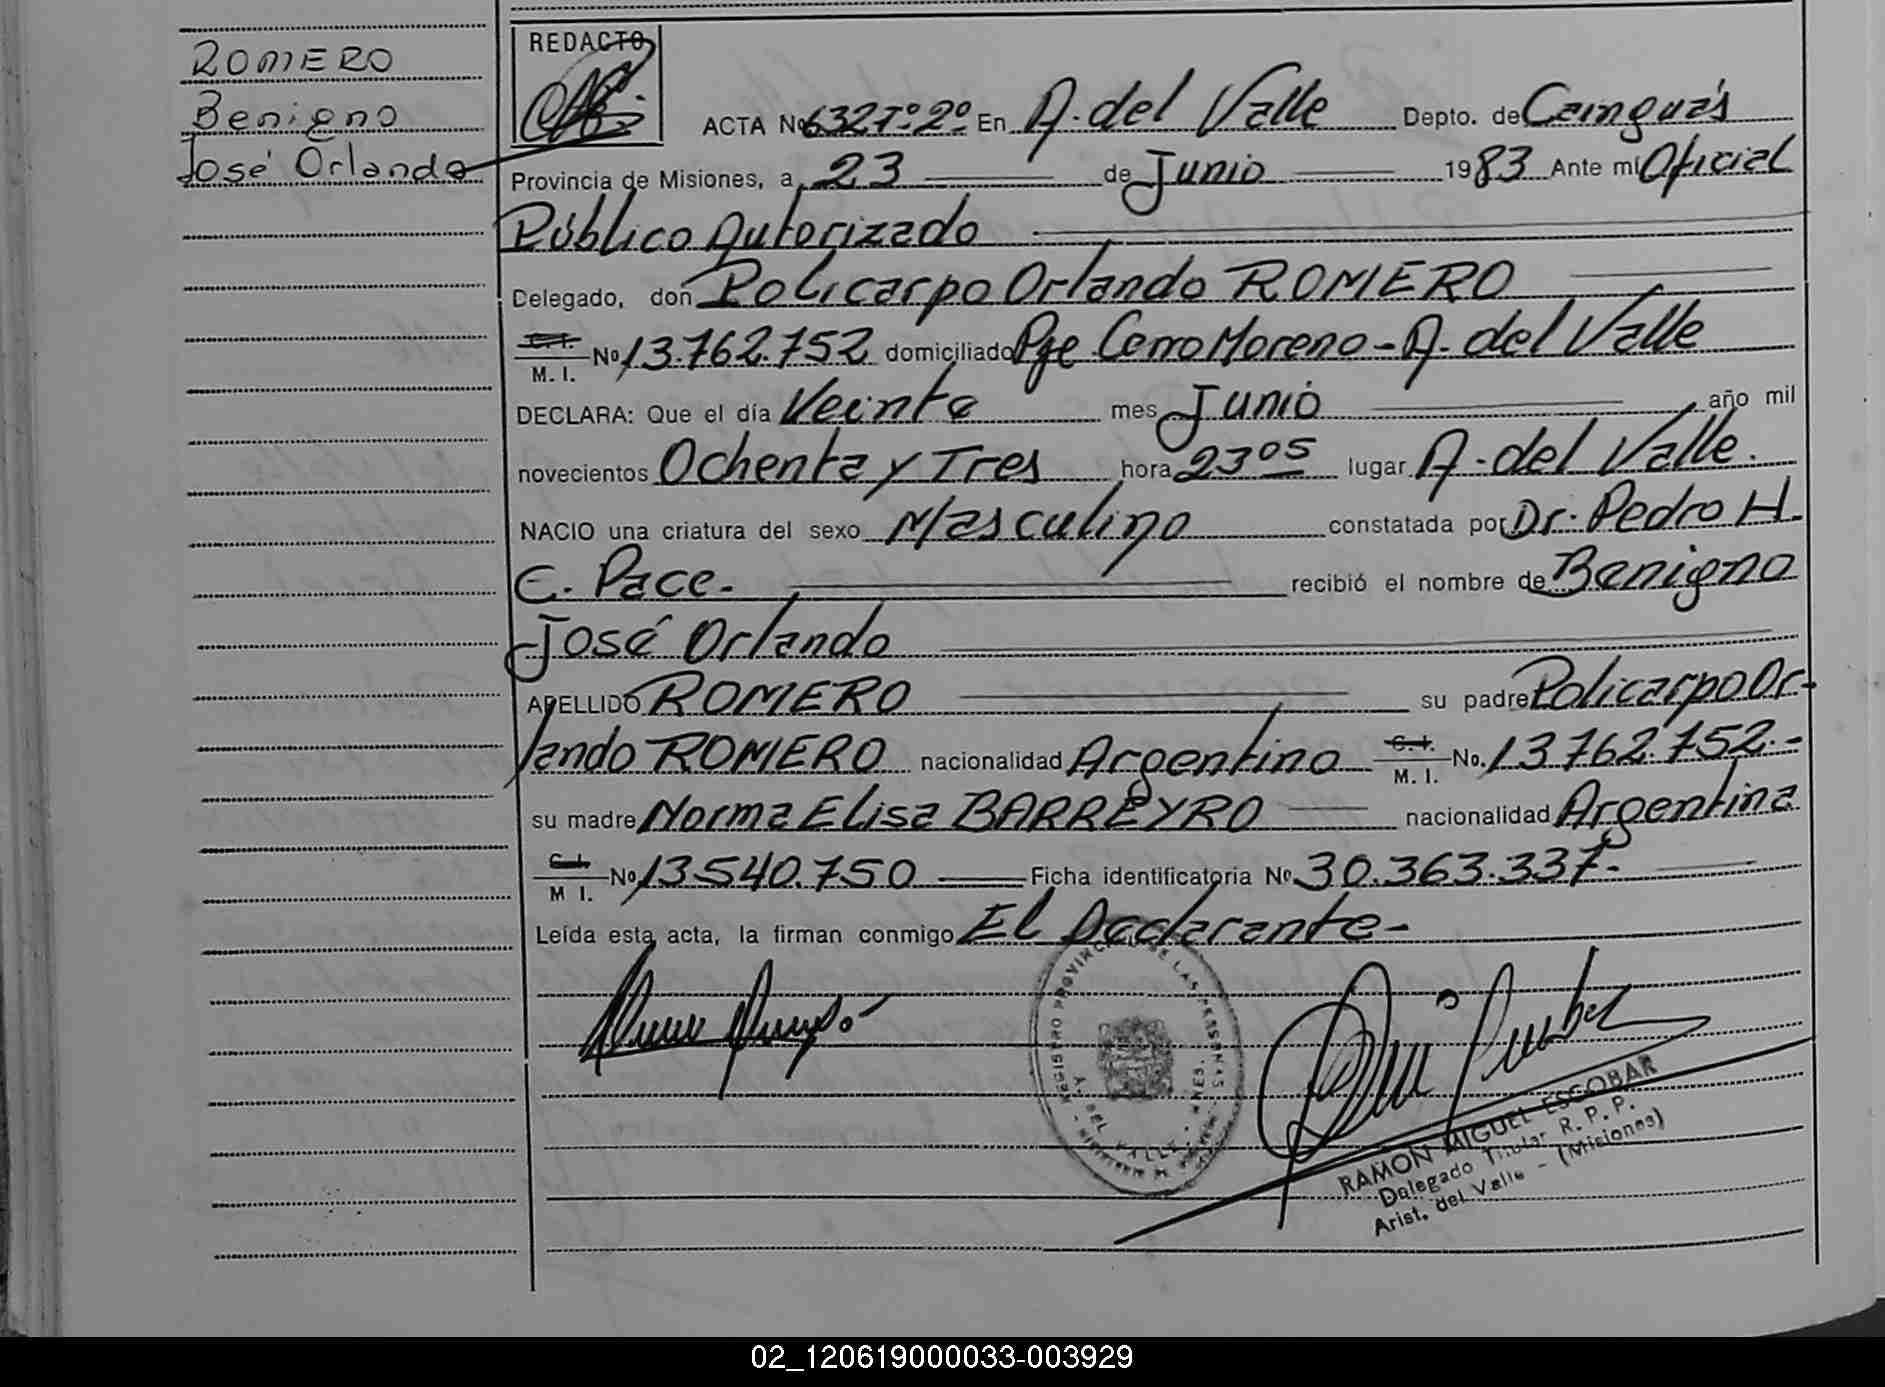 ROMERO
Benigno
José Orlando
REDACTO
ACTA Nº 632 Tº 2º En A. del Valle Depto. de Cainguás
Provincia de Misiones, a 23 de Junio 1983 Ante mí Oficial
Público Autorizado
Delegado, don Policarpo Orlando ROMERO
C.I.
M. I. Nº 13.762.752 domiciliado Pje Cerro Moreno - A. del Valle
DECLARA: Que el día Veinte mes Junio año mil
novecientos Ochenta y Tres hora 23 05 lugar A. del Valle.
NACIO una criatura del sexo Masculino constatada por Dr. Pedro H.
E. Pace. recibió el nombre de Benigno
José Orlando
APELLIDO ROMERO su padre Policarpo Or-
lando ROMERO nacionalidad Argentino C.I. M. I. No. 13.762.752.-
su madre Norma Elisa BARREYRO nacionalidad Argentina
C.I.
M I. Nº 13.540.750 Ficha identificatoria Nº 30.363.337.-
Leída esta acta, la firman conmigo El Declarante-
REGISTRO PROVINCIAL DE LAS PERSONAS
A. DEL VALLE - MNES.
RAMON MIGUEL ESCOBAR
Delegado Titular R. P. P.
Arist. del Valle - (Misiones)
02_120619000033-003929